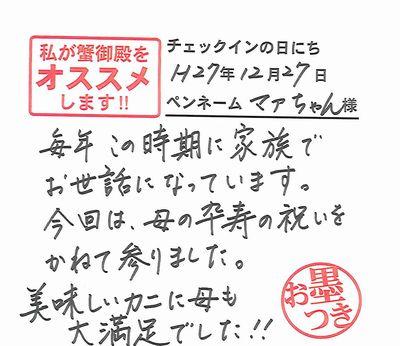 私が蟹御殿を
オススメ
します!!
チェックインの日にち
H27年12月27日
ペンネーム マァちゃん様
毎年この時期に家族で
お世話になっています。
今回は、母の卒寿の祝いを
かねて参りました。
美味しいカニに母も
大満足でした!!
お墨つき